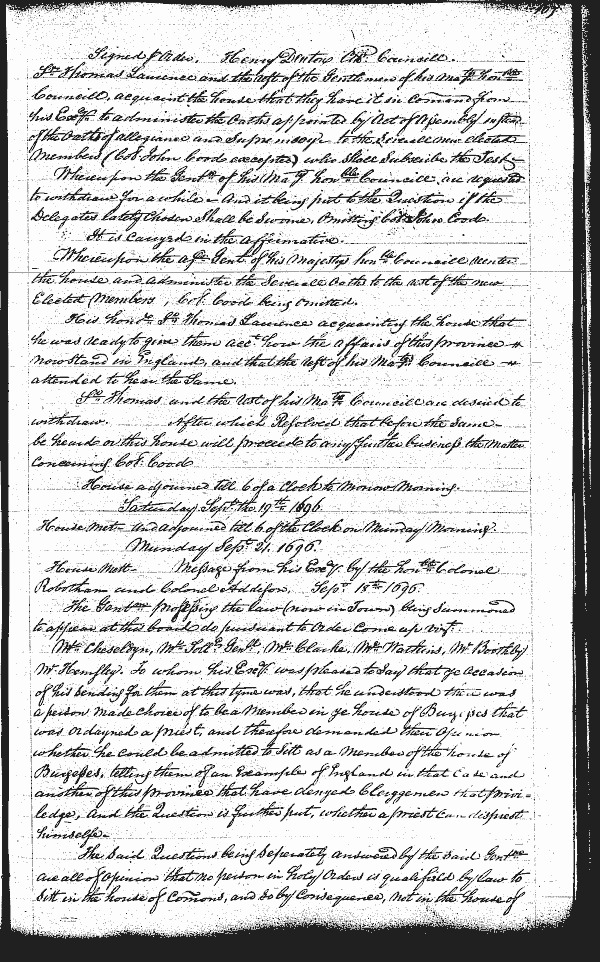 Signed p Order, Henry Denton Clk Councill.
Sr. Thomas Laurence and the rest of the Gentlemen of his Majtys honble
Councill, acquaint the house that they have it in Comand from
his Excy to administer the Oaths appointed by Act of Assembly instead
of the Oaths of allegiance and Supremacy to the Severall new elected
Members (Col. John Coode excepted) who shall Subscribe the Test
Whereupon the Gentn of his Maty honble Councill are requested
to withdraw for a while And it being put to the Question if the
Delegates lately chosen Shall be Sworne, Omitting Col. John Cood
It is carryed in the affirmative.
Whereupon the afd Gent. of his Majestys honble Councill reenter
the house and administer the Severall Oaths to the rest of the new
Elected Members, Col. Cood being omitted.
His honr. Sr Thomas Laurence acquainting the house that
he was ready to give them acct. how the affairs of this province
now stand in England, and that the rest of his Matys Councill
attended to hear the Same.
Sr Thomas and the rest of his Matys Councill are desired to
withdraw. After which Resolved that before the Same
be heard or this house will proceed to any further business the Matter
Concerning Col. Cood
House adjourned till 6 of a Clock to Morrow Morning.
Saturday Sept. the 19th. 1696.
House mett and adjourned till 6 of the Clock on Munday Morning.
Munday Sepr. 21. 1696.
House Mett Message from his Excy. by the honble Colonel
Robotham and Colonel Addison, Sepr. 18th 1696.
The Gentmn professing the law (now in Town) being Summoned
to appear at this board do pursuant to Order Come up vizt.
Mr. Cheseldyn, Mr. Clarke, Mr. Watkins, Mr Boothby
Mr Hemsley. To whom his Excy. was pleased to Say that ye Occasion
of his Sending for them at this tyme was, that he understood there was
a person made choice of to be a Member in ye house of Burgesses that
was Ordayned a priest, and therefore demanded their Opinion
whether he could be admitted to Sitt as a Member of the house of
Burgesses, telling them of an Example of England in that Case and
another of this province that have denyed Clergymen that privi-
ledge, And the Question is further put, whether a priest can dispriest
himselfe.
The Said Questions being Seperately answered by the Said Gentmn
are all of Opinion that no person in holy Orders is qualified by law to
Sitt in the house of Comons, and so by Consequence, not in the house of